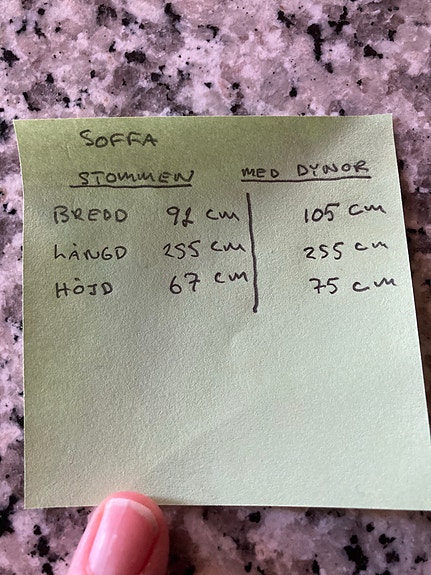 SOFFA
STOMMEN MED DYNOR
BREDD 92 cm 105 cm
LÄNGD 255 cm 255 cm
HÖJD 67 cm 75 cm